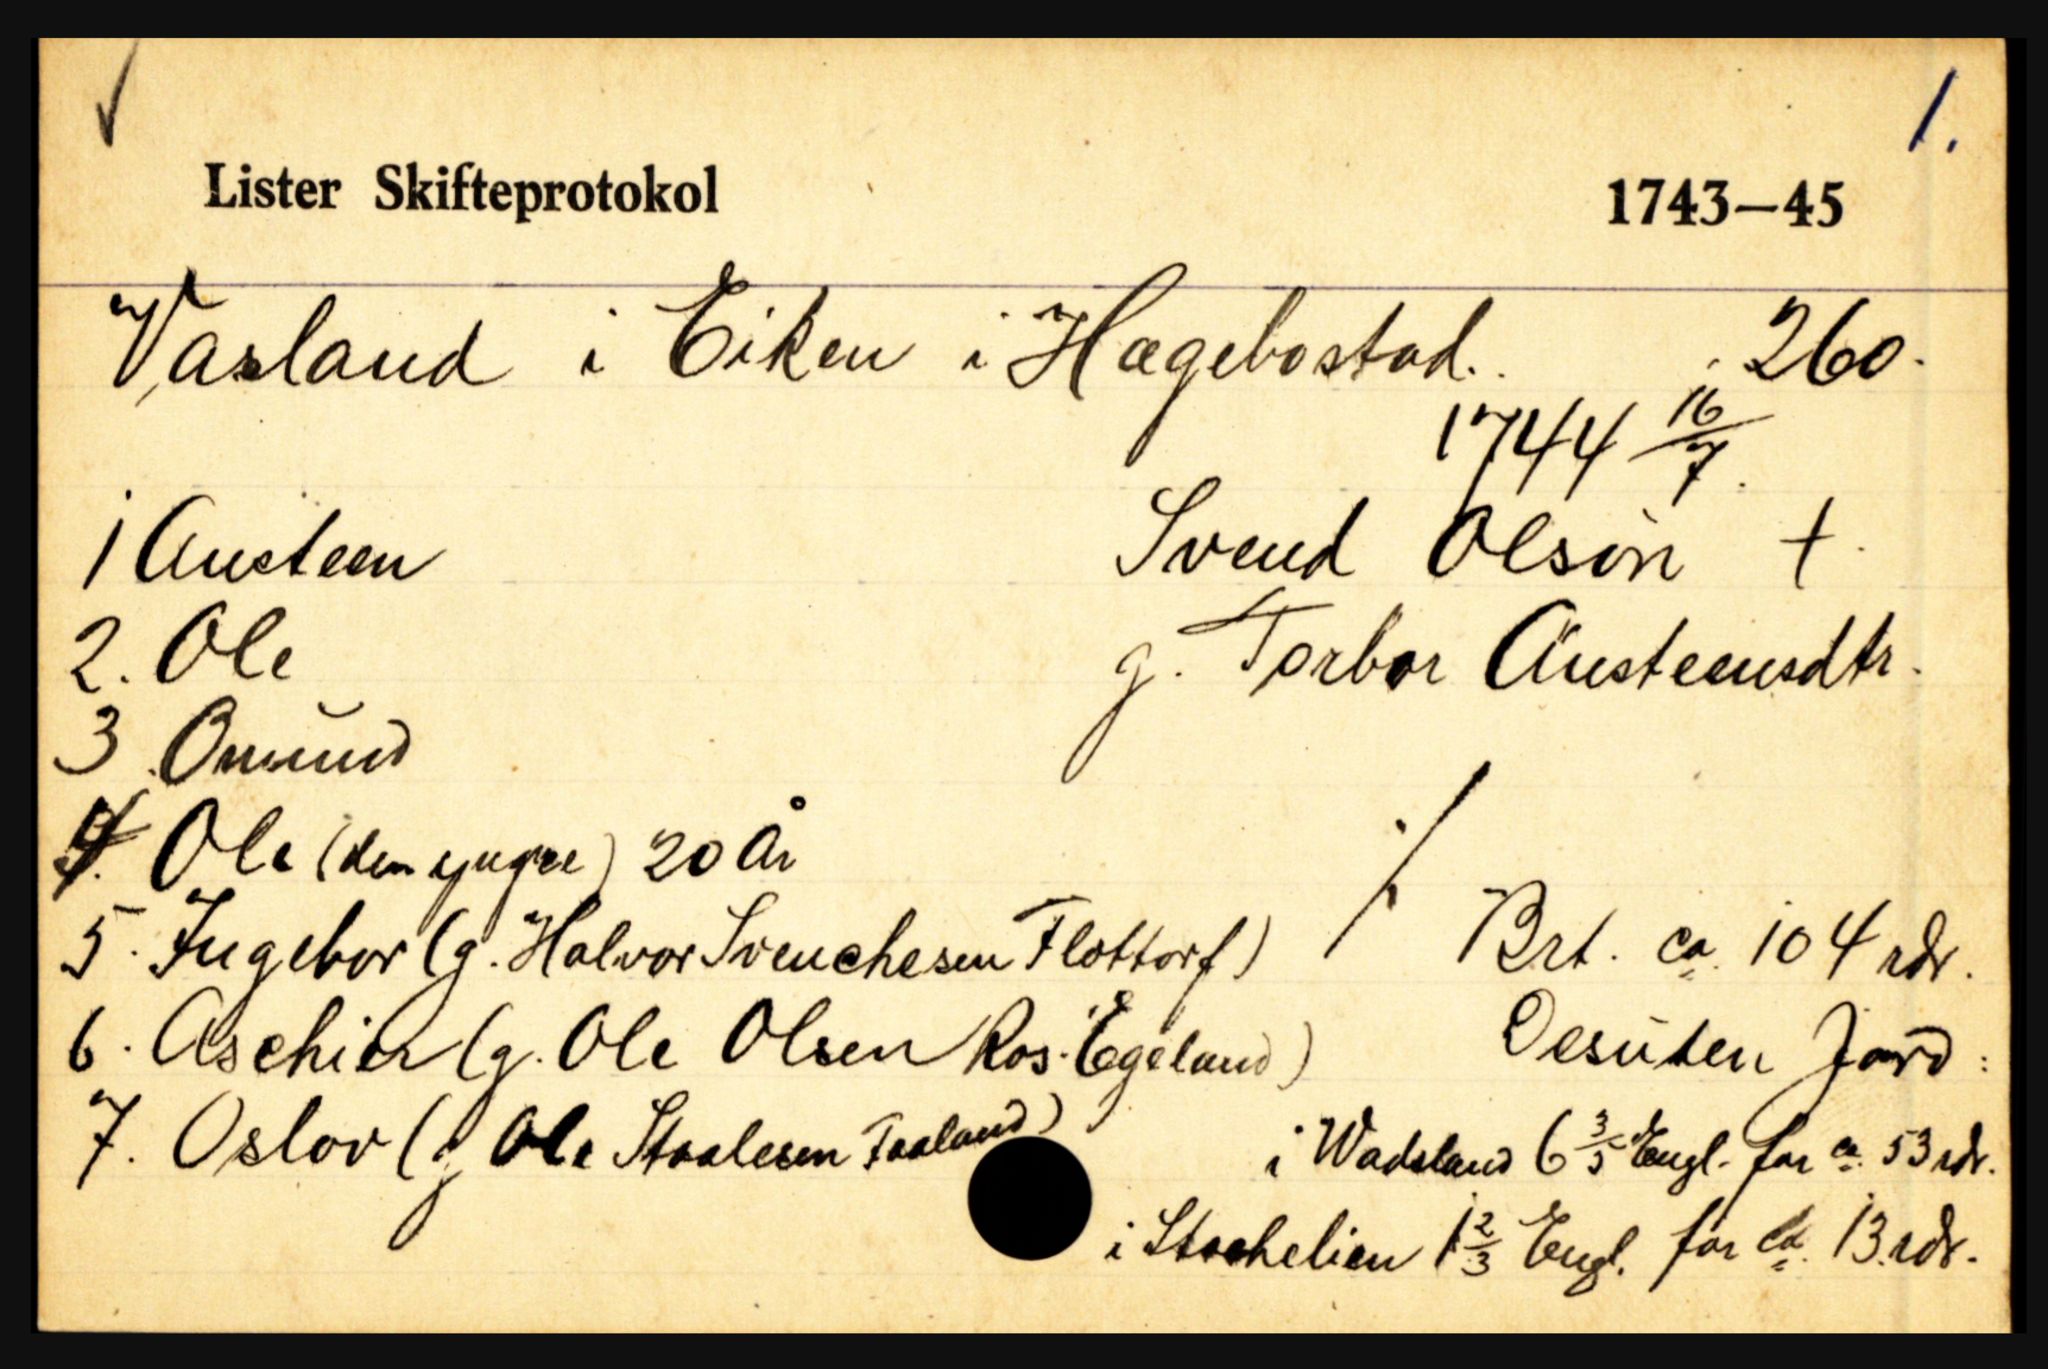 1.
Lister Skifteprotokol 1743–45
Vasland i Eiken i Hægebostad. 260.
1744 16/7.
1 Austeen
Svend Olsøn †.
2. Ole
g. Torbor Austeensdtr.
3. Omund
4. Ole (den yngre) 20 År
5. Ingebor (g. Halvor Svenchesen Flottorf)
Brt. ca. 104 rdr.
6. Aschier (g. Ole Olsen Ros. Egeland)
Desuten Jord:
7. Oslov (g Ole Staalesen Faaland)
i Wadsland 6 3/5 Engl. for ca. 53 rdr.
i Stochelien 1 2/3 Engl. for ca. 13 rdr.